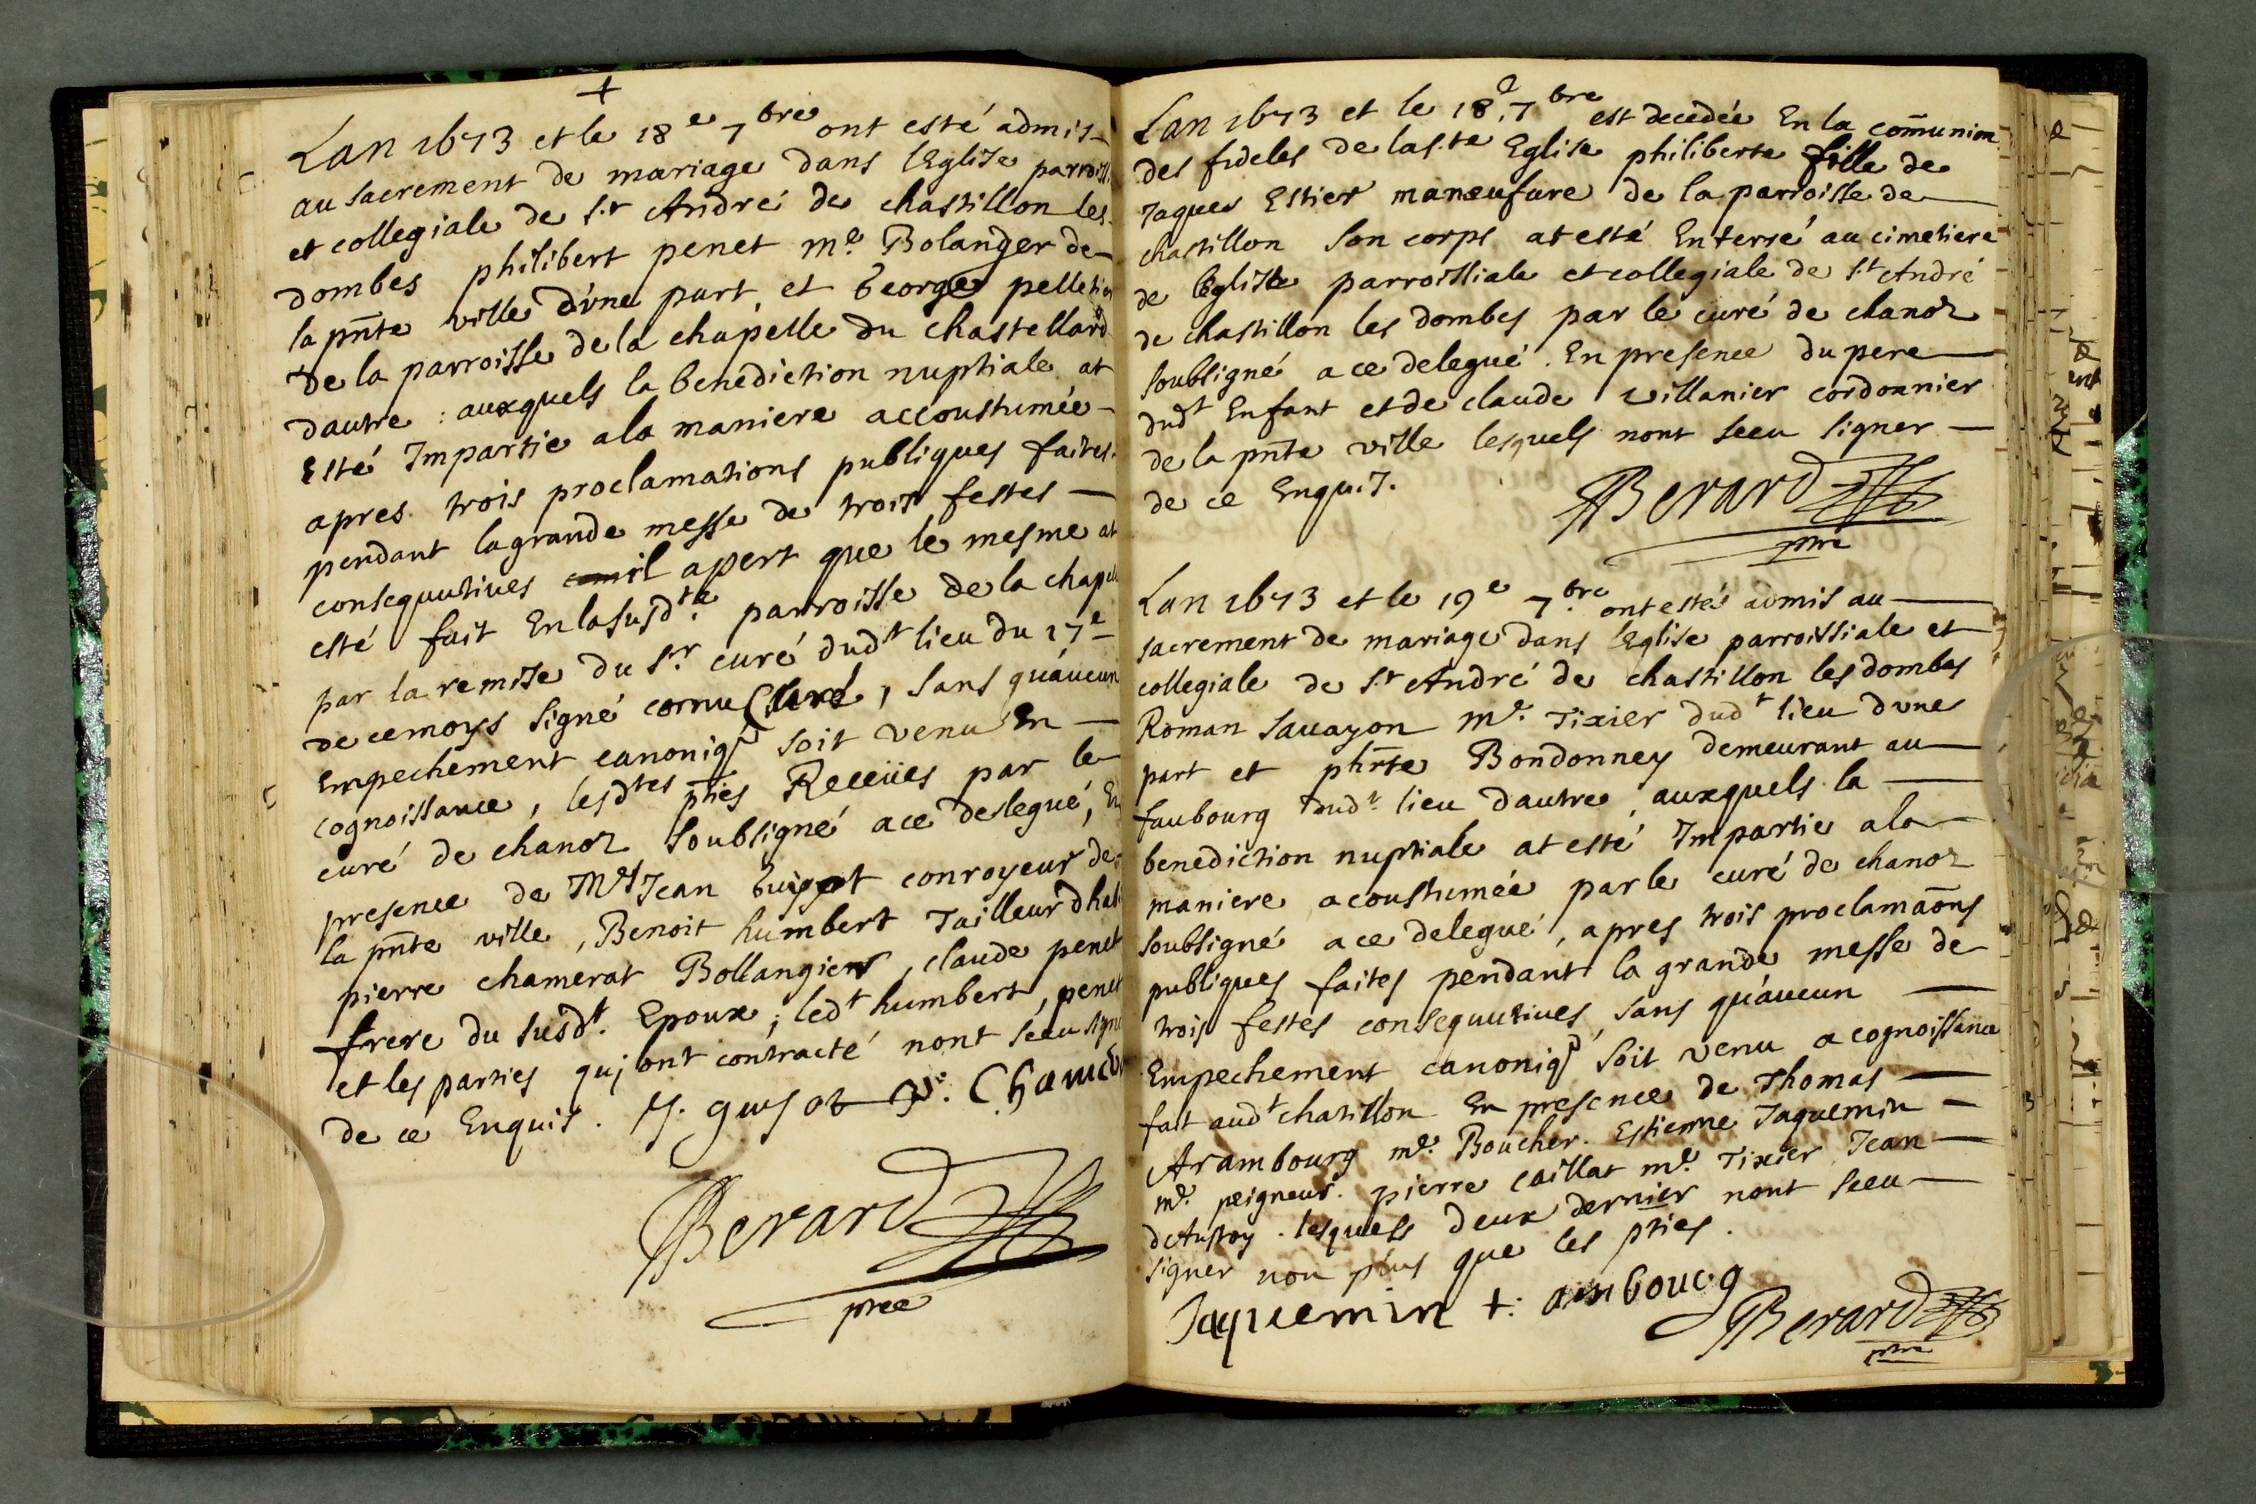 +
Lan 1673 et le 18e 7bre ont esté admis
au sacrement de mariage dans lEglise parroiss.
et collegiale de St André de chastillon les
dombes philibert penet me Bolanger de
la pnte ville d'vne part, et George pelletier
de la parroisse de la chapelle du chastellard
dautre : auxquels la benediction nuptiale at
Esté Impartie a la maniere accoustumée
apres trois proclamations publiques faites
pendant la grande messe de trois festes
consequutives il apert que le mesme at
esté fait En la susdte parroisse de la chapelle
par la remise du Sr curé dudt lieu du 17e
de ce moys signé cornu Curé, sans qu'aucun
Empechement canoniq soit venu En
cognoissance, lesdtes pties Receües par le
curé de chanoz soubsigné a ce deslegué, En
presence de Mes Jean conroyeur de
la pnte ville, Benoit humbert Tailleur dhab
pierre chamerat Bollangier, claude penet
frere du susdt. Epoux ; ledt humbert, penet
et les parties quj ont contracté nont sceu signe
de ce Enquis. guyot
Berard
pree
Lan 1673 et le 18e 7bre est decedée En la communion
des fideles de la ste Eglise philiberte fille de
Jaques Estier manœufure de la parroisse de
chastillon son corps at esté Enterré au cimetiere
de leglise parroissiale et collegiale de St André
de chastillon les dombes par le curé de chanoz
soubsigné a ce delegué. En presence du pere
dudt Enfant et de claude villanier cordonnier
de la pnte ville lesquels nont sceu signer
de ce Enquis.
Berard
ptre
Lan 1673 et le 19e 7bre ont estés admis au
sacrement de mariage dans lEglise parroissiale et
collegiale de St André de chastillon les dombes
Roman sauayon Me Tixier dudt lieu dvne
part et phrte Bondonney demeurant au
faubourg dudt lieu dautre, auxquels la
benediction nuptiale at esté Impartie a la
maniere acoustumée par le curé de chanoz
soubsigné a ce delegué, apres trois proclamaons
publiques faites pendant la grande messe de
trois festes consequutiues, sans qu'aucun
Empechement canoniq soit venu a cognoissance
fait audt chatillon En presence de Thomas
Arambourg me Boucher. Estienne Jaquemin
me peigneur. pierre caillat me Tixier Jean
lesquels deux dernier nont sceu
signer non plus que les pties.
Jaquemin +: amboucg
Berard
ptre